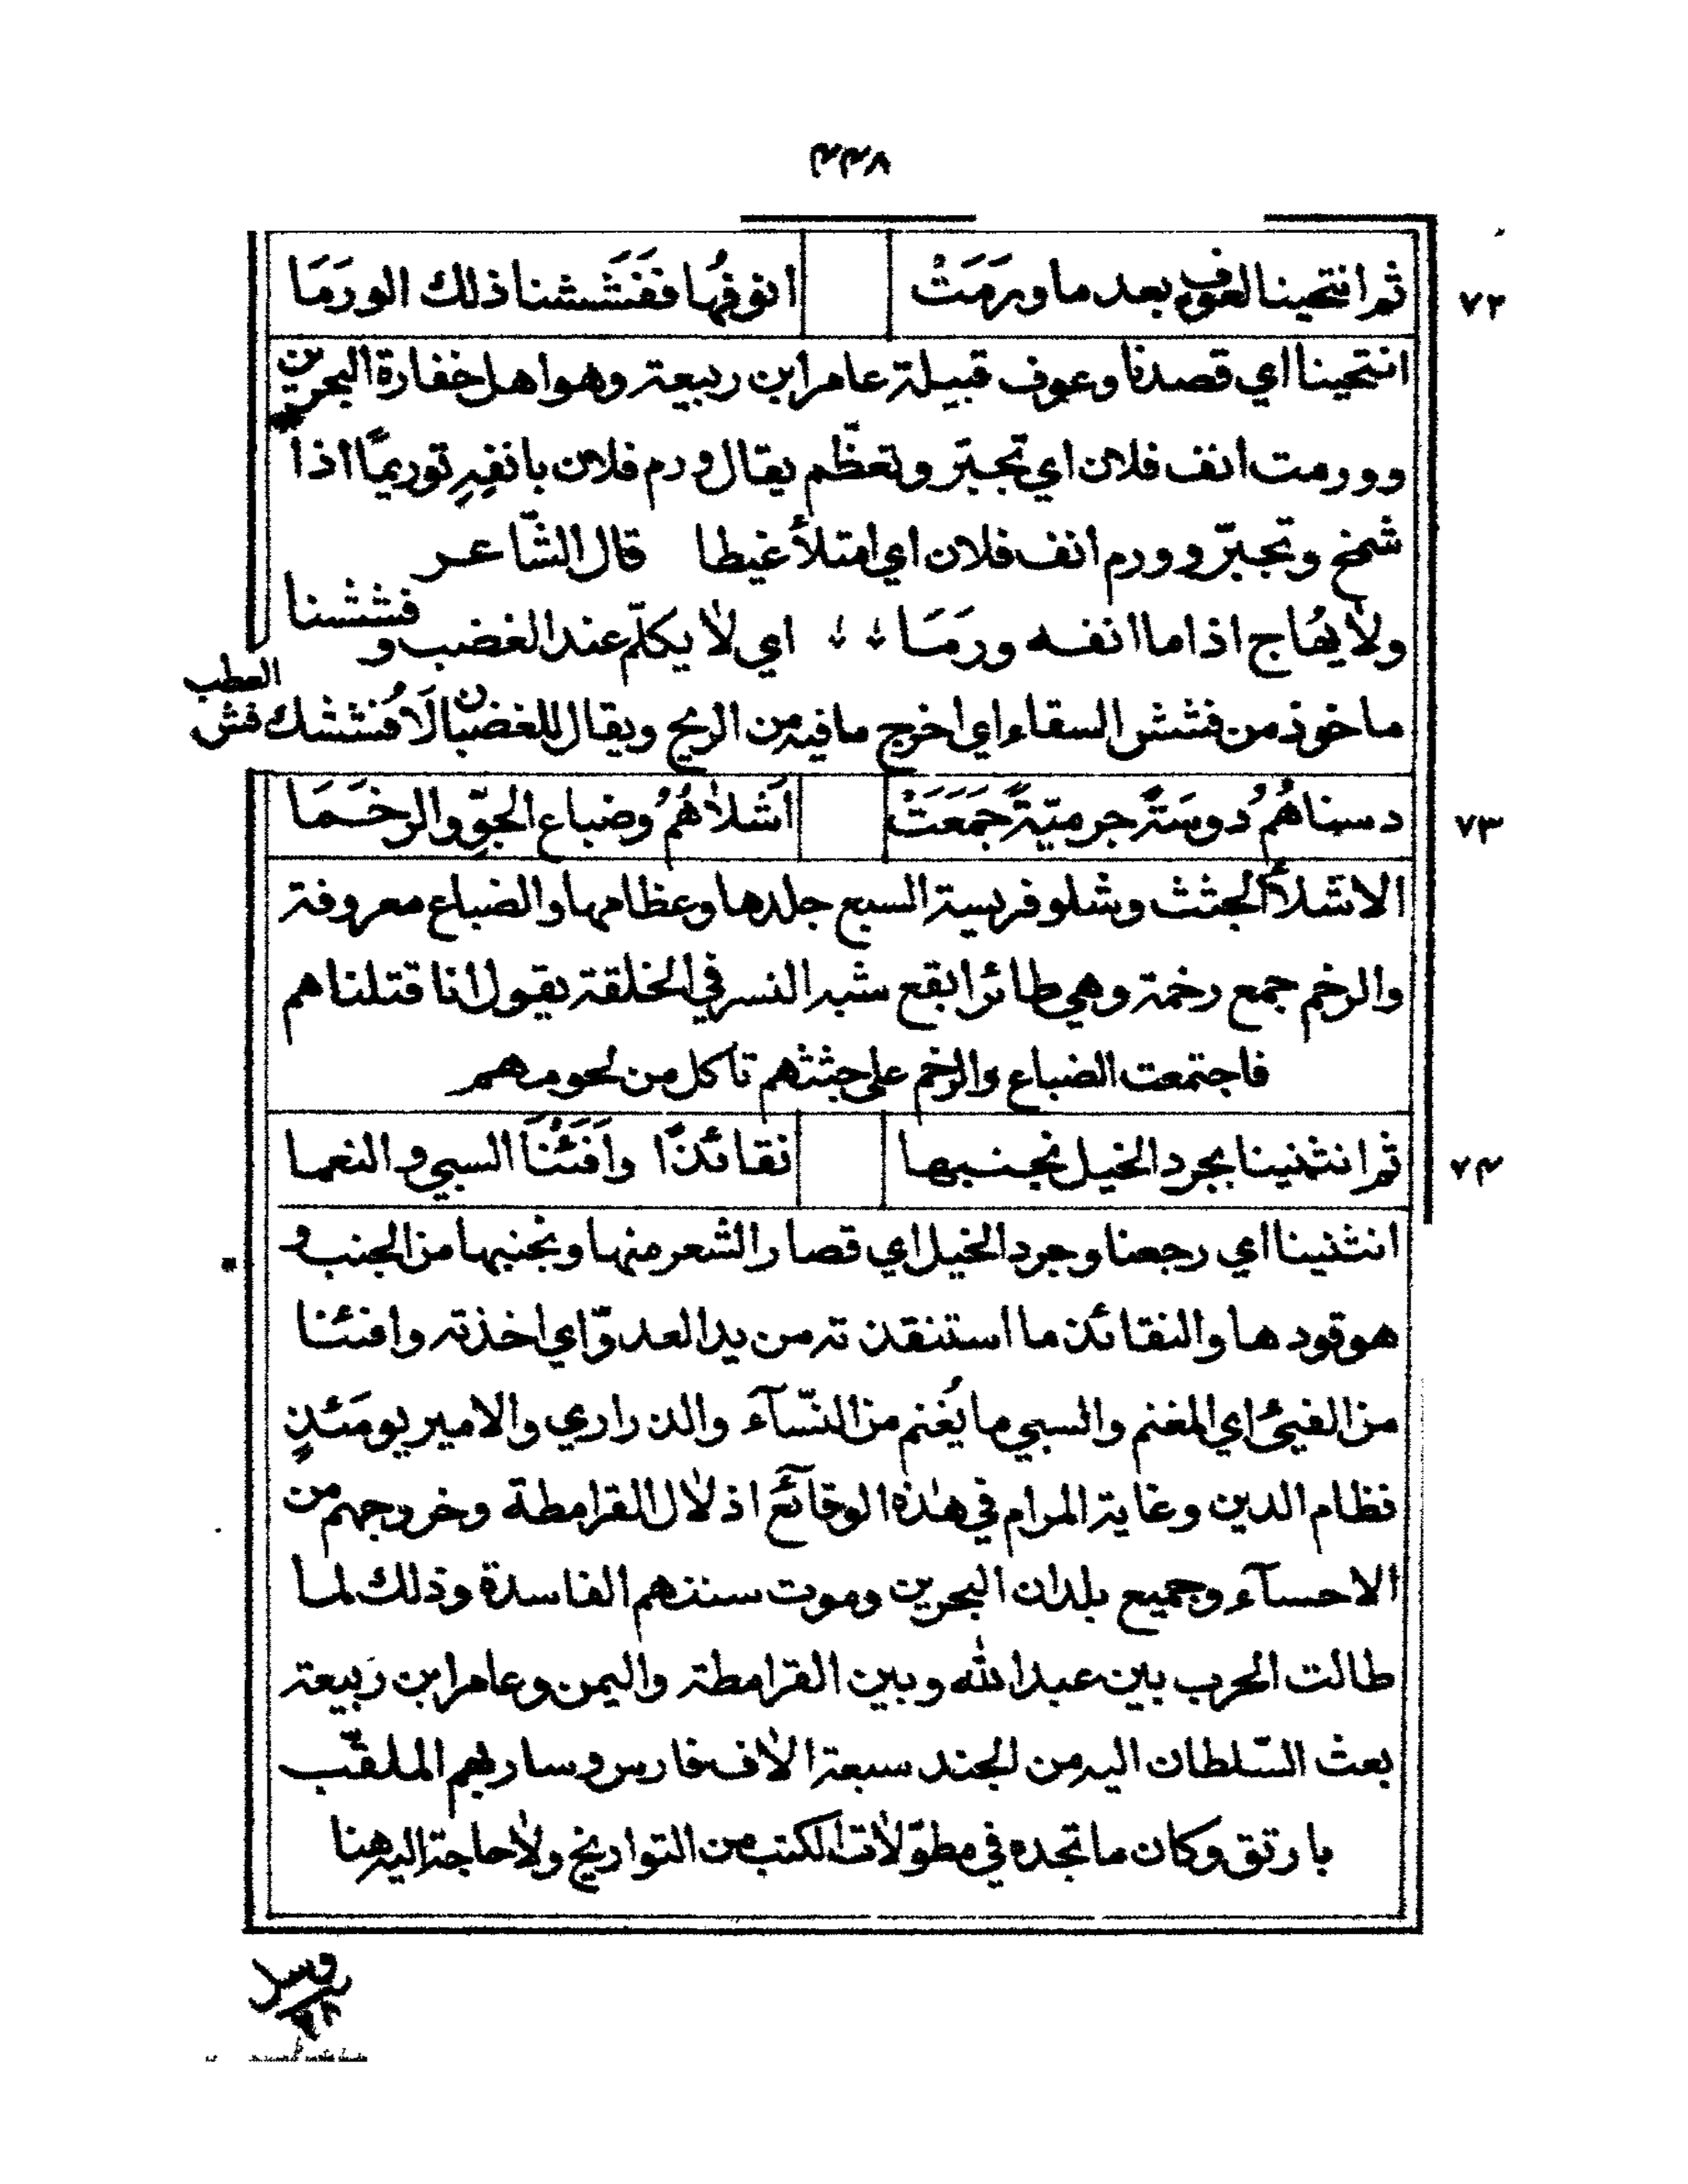 ٤٤٧
٧٢ ثم انتحينا لعوف بعد ما ورَمَتْ انوفُها ففَشَششنا ذلك الورَمَا
انتحينا اي قصدنا وعوف قبيلة عامر ابن ربيعة وهو اهل خفارة البحرين
وورمت انف فلان اي تجبّر وتعظّم يقال ورم فلان بانفِهِ توريمًا اذا
شمخ وتجبّر وورم انف فلان اي امتلأ غيطا قال الشّاعر
ولا يهُاج اذا ما انفه ورَمَا اي لا يكلّم عند الغضب و فششنا
ماخوذ من فشش السقاء اي اخرج ما فيه من الريح ويقال للغضبان لَافُششنك فش
العطب
٧٣ دسناهُمُ دوسَةً جرميّةً جَمَعَتْ اَشلاهُمُ وضباع الجوِّ والرخَمَا
الاشلأ الجثث وشلو فريسة السبع جلدها وعظامها والضباع معروفة
والرخم جمع رخمة وهي طائر ابقع شبه النسر في الخلقة يقول انا قتلناهم
فاجتمعت الضباع والرخم على جثثهم تاكل من لحومهم
٧٤ ثم انثنينا بجرد الخيل نجنبها نقائذًا وافَئْنَا السبي والنعما
انثنينا اي رجعنا وجرد الخيل اي قصار الشعر منها ونجنبها من الجنب و
هو قودها والنقائذ ما استنقذته من يد العدوّ اي اخذته وافئنا
من الفيئ اي المغنم والسبي ما يُغنم من النّسآء والذراري والامير يومَئذٍ
نظام الدين وغاية المرام في هذه الوقآئع اذلال القرامطة وخروجهم من
الاحسآء وجميع بلدان البحرين وموت سننهم الفاسدة وذلك لما
طالت الحرب بين عبد الله وبين القرامطة واليمن وعامر ابن رَبيعة
بعث السّلطان اليه من الجند سبعة الاف فارس وسار بهم الملقّب
بارتق وكان ما تجده في مطوّلات الكتب من التواريخ ولا حاجة اليه هنا